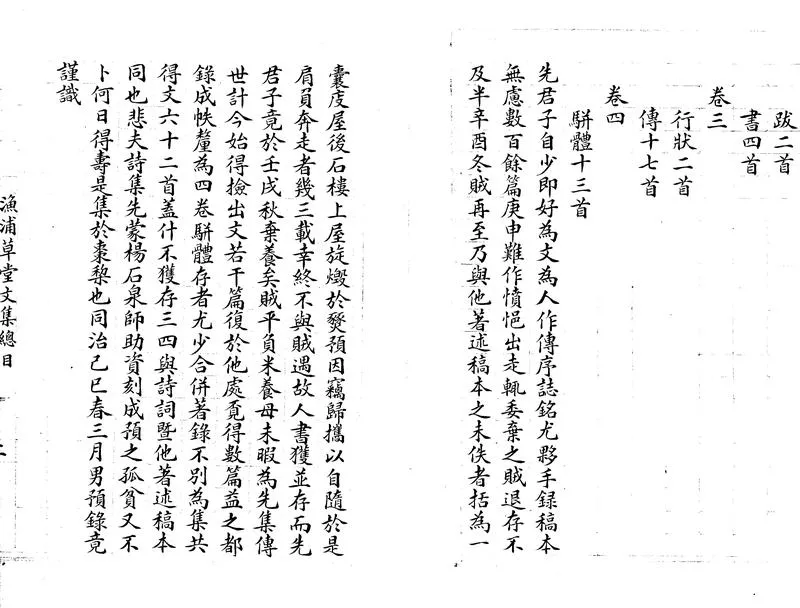 跋二首
書四首
卷三
行狀二首
傳十七首
卷四
駢體十三首
先君子自少即好為文為人作傳序誌銘尤夥手録稿本
無慮數百餘篇庚申難作憤悒出走輒委棄之賊退存不
及半辛酉冬賊再至乃與他著述稿本之未佚者括為一
囊庋屋後石樓上屋旋燬於燹預因竊歸攜以自隨於是
肩負奔走者幾三載幸終不與賊遇故人書獲並存而先
君子竟於壬戌秋棄養矣賊平負米養母未暇為先集傳
世計今始得撿出文若干篇復於他處覓得數篇益之都
錄成帙釐為四卷駢體存者尤少合併著錄不別為集共
得文六十二首蓋什不獲存三四與詩詞暨他著述稿本
同也悲夫詩集先蒙楊石泉師助資刻成預之孤貧又不
卜何日得壽是集於棗棃也同治己巳春三月男預錄竟
謹識
漁浦草堂文集總目